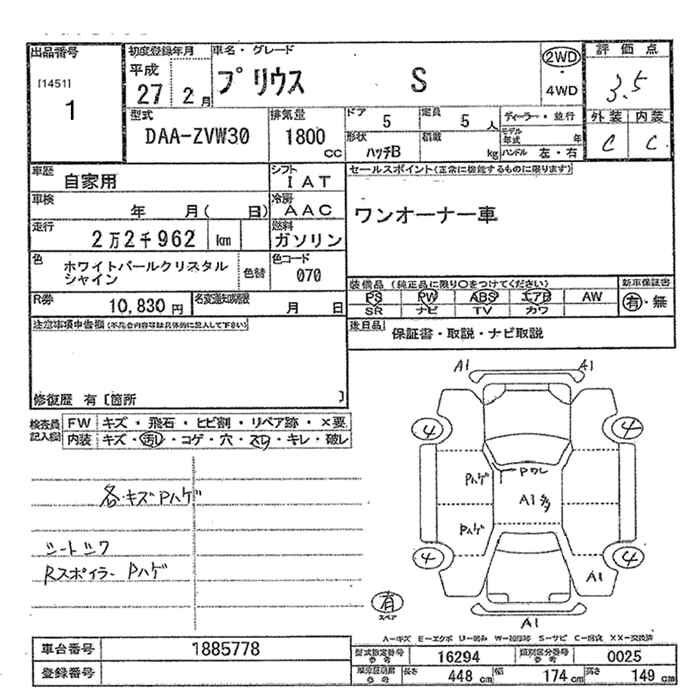 出品番号
[1451]
1
初度登録年月
平成
27 2月
車名・グレード
プリウス S
2WD
・
4WD
評価点
3.5
外装 内装
C C
型式
DAA-ZVW30
排気量
1800 CC
ドア 5
定員 5 人
形状 ハッチB
積載 kg
ディーラー・並行
モデル年式 年
ハンドル 左・右
車歴 自家用
シフト IAT
車検 年 月( 日)
冷房 AAC
走行 2万2千962 km
燃料 ガソリン
色 ホワイトパールクリスタル
シャイン
色替
色コード 070
R券 10,830円
名変通知期限 月 日
セールスポイント(正常に機能するものに限ります)
ワンオーナー車
装備品 (純正品に限り○をつけてください)
新車保証書
PS PW ABS エアB AW
有・無
SR ナビ TV カワ
後日品 保証書・取説・ナビ取説
注意事項申告欄
修復歴 有〔箇所 〕
検査員記入欄
FW キズ・飛石・ヒビ割・リペア跡・×要
内装 キズ・汚レ・コゲ・穴・スレ・キレ・破レ
各・キズPハゲ
シートシワ
Rスポイラー Pハゲ
A1 A1
4 4
Pハゲ Pワレ
A1多
Pハゲ
4 4
A1
A1
有
スペア
A-キズ E-エクボ U-凹み W-補修跡 S-サビ C-腐食 XX-交換済
車台番号 1885778
登録番号
型式指定番号 参考 16294
類別区分番号 参考 0025
参考 長さ 448 cm 幅 174 cm 高さ 149 cm